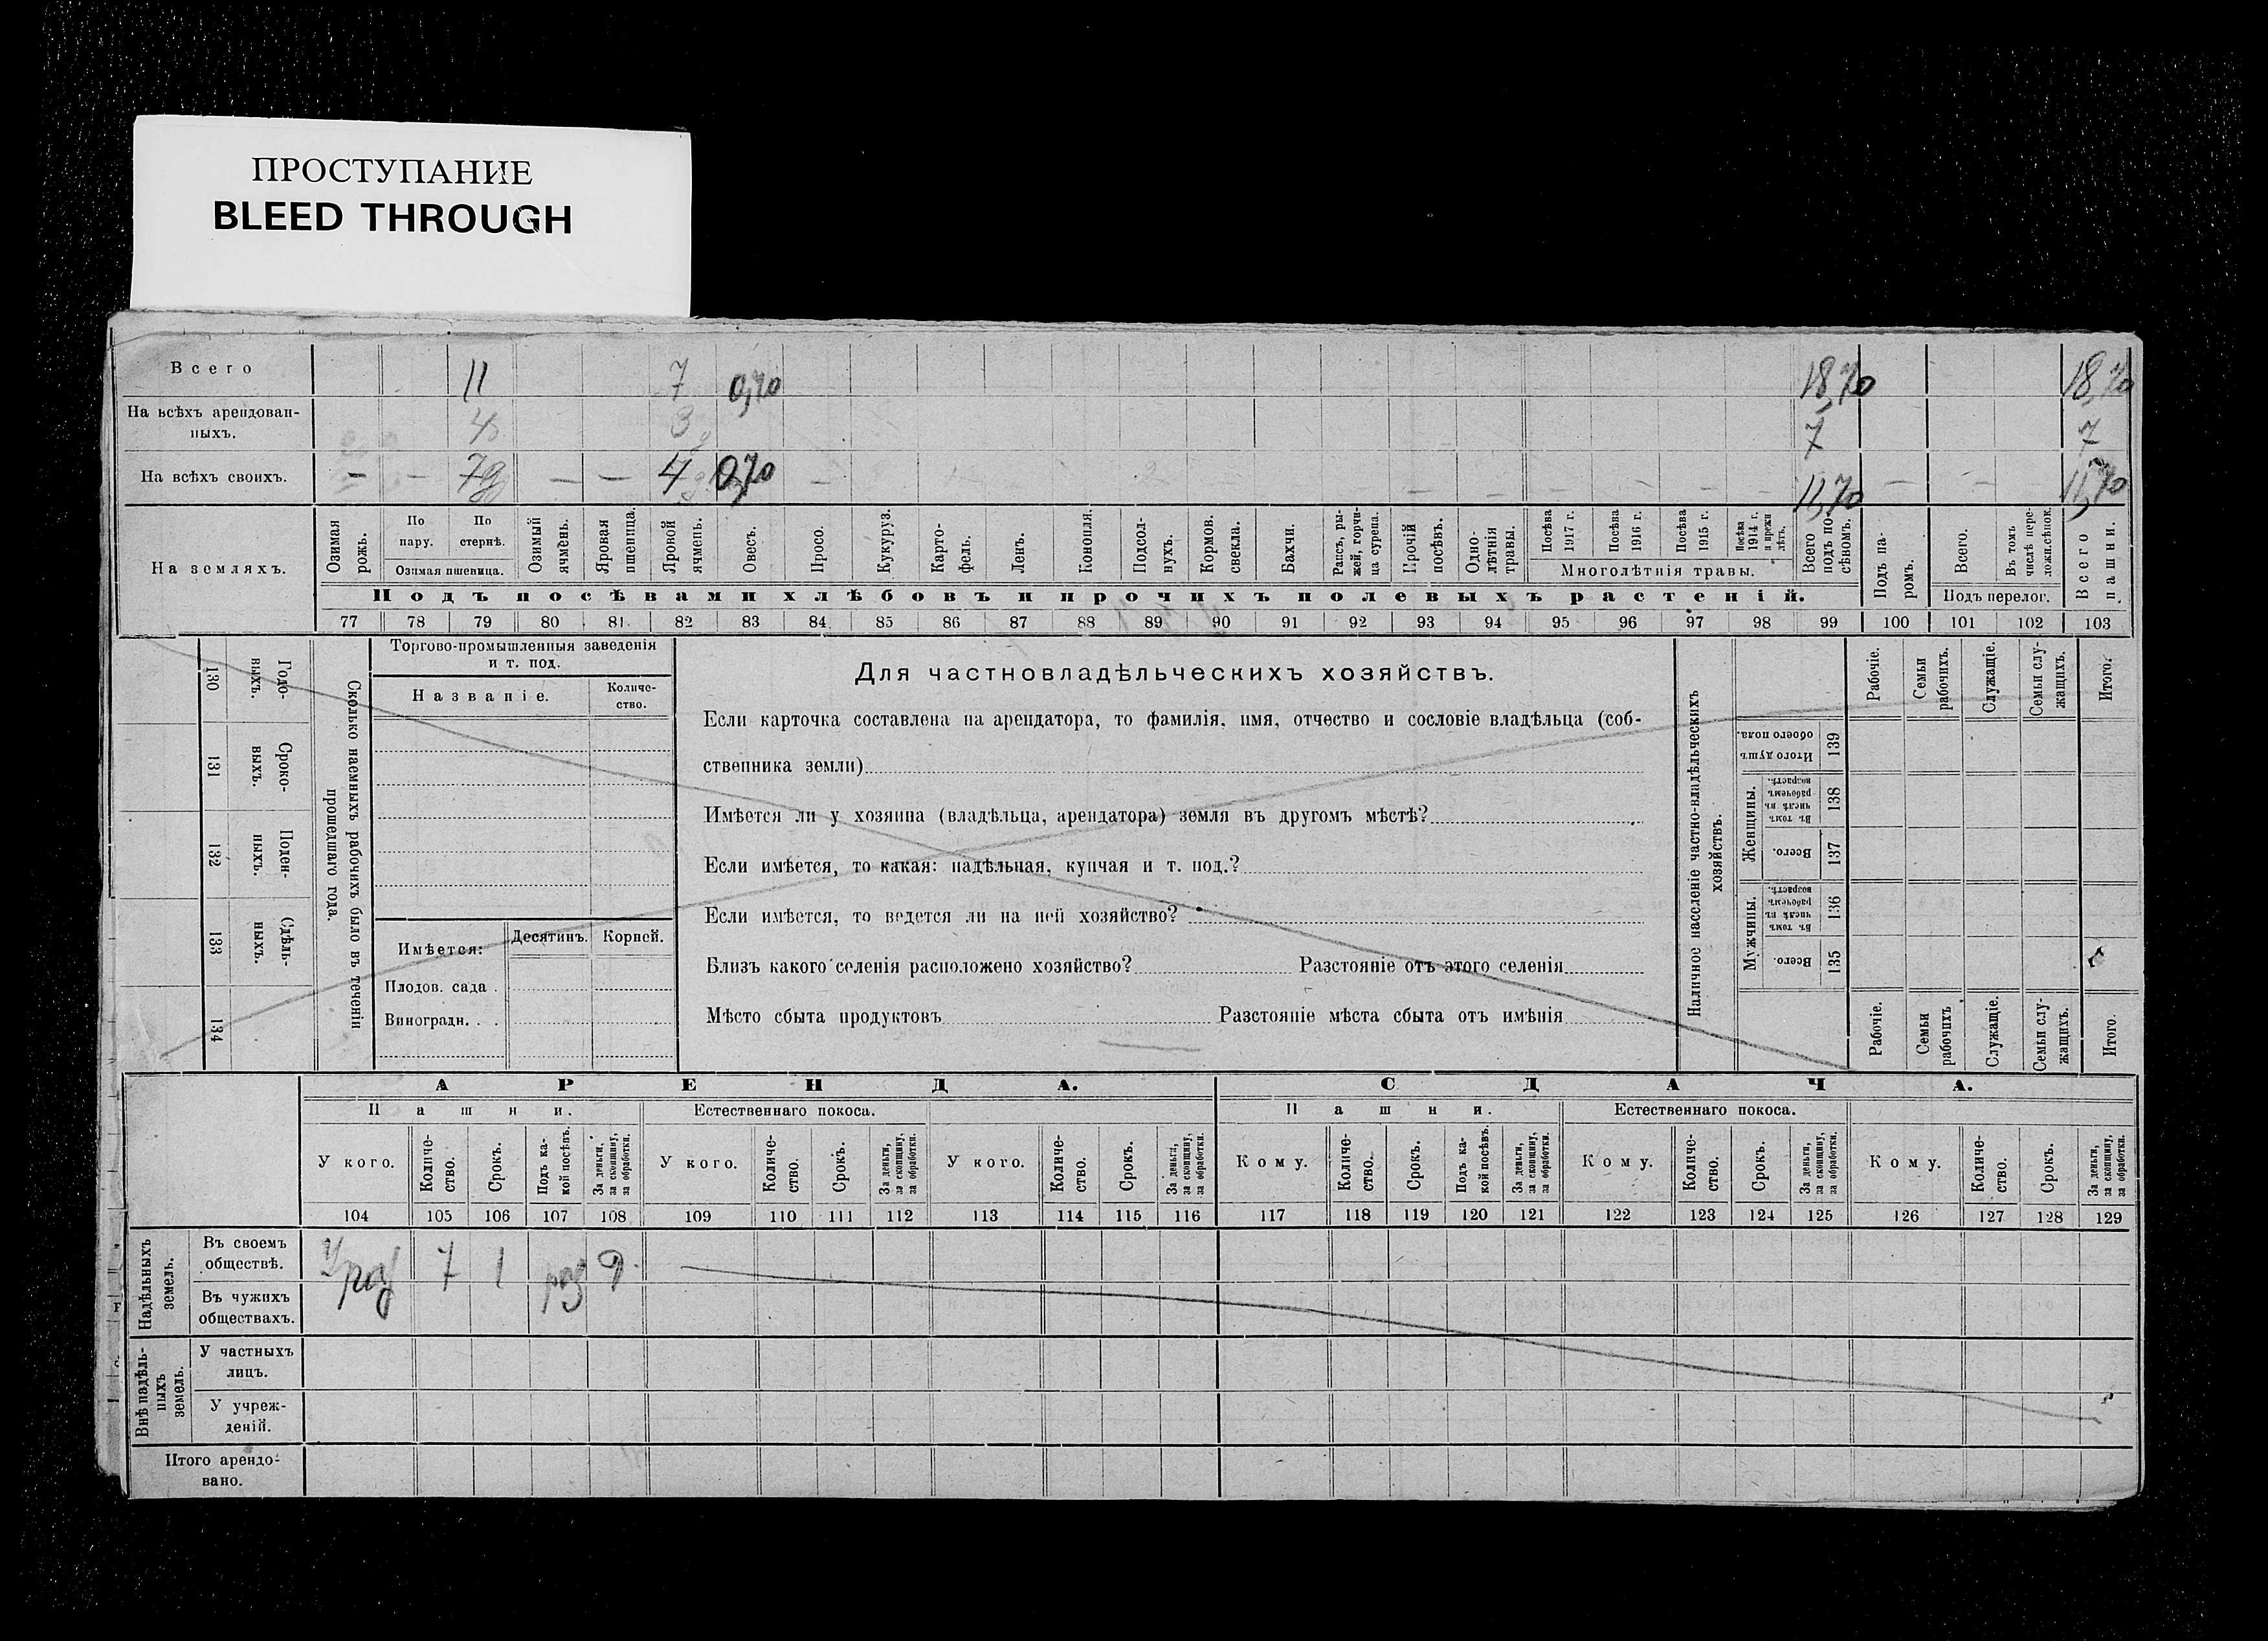 ПРОСТУПАНИЕ
BLEED THROUGH
Всего 11 7 0,70 18,70 18,70
На всѣхъ арендован-
ныхъ. 4 3 7 7
На всѣхъ своихъ. — — 7 — — 4 0,70 — 11,70 — — — 11,70
На земляхъ.
Озимая рожь.
По пару.
По стернѣ.
Озимая пшеница.
Озимый ячмень.
Яровая пшеница.
Яровой ячмень.
Овесъ.
Просо.
Кукуруз.
Карто-
фель.
Ленъ.
Конопля.
Подсол-
нухъ.
Кормов. свекла.
Бахчи.
Рапсъ, ры-
жей, горчи-
ца сурепа.
Прочій посѣвъ.
Одно-
лѣтнія травы.
Посѣва 1917 г.
Посѣва 1916 г.
Посѣва 1915 г.
Посѣва 1914 г. и прежн лѣтъ.
Многолѣтнія травы.
Всего подъ по-
сѣвомъ.
Подъ па-
ромъ.
Всего.
Въ томъ числѣ пере-
ложн.сѣнок.
Подъ перелог.
Всего пашни.
Подъ посѣвами хлѣбовъ и прочихъ полевыхъ растеній.
77 78 79 80 81 82 83 84 85 86 87 88 89 90 91 92 93 94 95 96 97 98 99 100 101 102 103
130 Годо-
выхъ.
131 Сроко-
выхъ.
132 Поден-
ныхъ.
133 Сдѣль-
ныхъ.
134
Сколько наемныхъ рабочихъ было въ теченіи
прошедшаго года.
Торгово-промышленныя заведенія
и т. под.
Названіе.
Количе-
ство.
Имѣется: Десятинъ. Корней.
Плодов. сада .
Виноградн. . .
Для частновладѣльческихъ хозяйствъ.
Если карточка составлена на арендатора, то фамилія, имя, отчество и сословіе владѣльца (соб-
ственника земли)
Имѣется ли у хозяина (владѣльца, арендатора) земля въ другомъ мѣстѣ?
Если имѣется, то какая: надѣльная, купчая и т. под.?
Если имѣется, то ведется ли на ней хозяйство?
Близъ какого селенія расположено хозяйство? Разстояніе отъ этого селенія
Мѣсто сбыта продуктовъ Разстояніе мѣста сбыта отъ имѣнія
Наличное населеніе частно-владѣльческихъ
хозяйствъ.
Рабочіе.
Семьи рабочихъ.
Служащіе.
Семьи слу-
жащихъ.
Итого.
Итого душъ обоего пола. 139
Женщины.
Въ томъ числѣ въ рабочемъ возрастѣ. 138
Всего. 137
Мужчины.
Въ томъ числѣ въ рабочемъ возрастѣ. 136
Всего. 135
Рабочіе.
Семьи рабочихъ
Служащіе.
Семьи слу-
жащихъ.
Итого.
АРЕНДА. СДАЧА.
Пашни. Естественнаго покоса. Пашни. Естественнаго покоса.
У кого.
Количе-
ство.
Срокъ.
Подъ ка-
кой посѣвъ.
За деньги, за скопщину, за обработки.
У кого.
Количе-
ство.
Срокъ.
За деньги, за скопщину, за обработки.
У кого.
Количе-
ство.
Срокъ.
За деньги, за скопщину, за обработки.
Кому.
Количе-
ство.
Срокъ.
Подъ ка-
кой посѣвъ.
За деньги, за скопщину, за обработки.
Кому.
Количе-
ство.
Срокъ.
За деньги, за скопщину, за обработки.
Кому.
Количе-
ство.
Срокъ.
За деньги, за скопщину, за обработки.
104 105 106 107 108 109 110 111 112 113 114 115 116 117 118 119 120 121 122 123 124 125 126 127 128 129
Надѣльныхъ земель.
Въ своемъ
обществѣ. 7 1 раз
Въ чужихъ
обществахъ.
Внѣ надѣль-
ныхъ земель.
У частныхъ
лицъ.
У учреж-
деній.
Итого арендо-
вано.